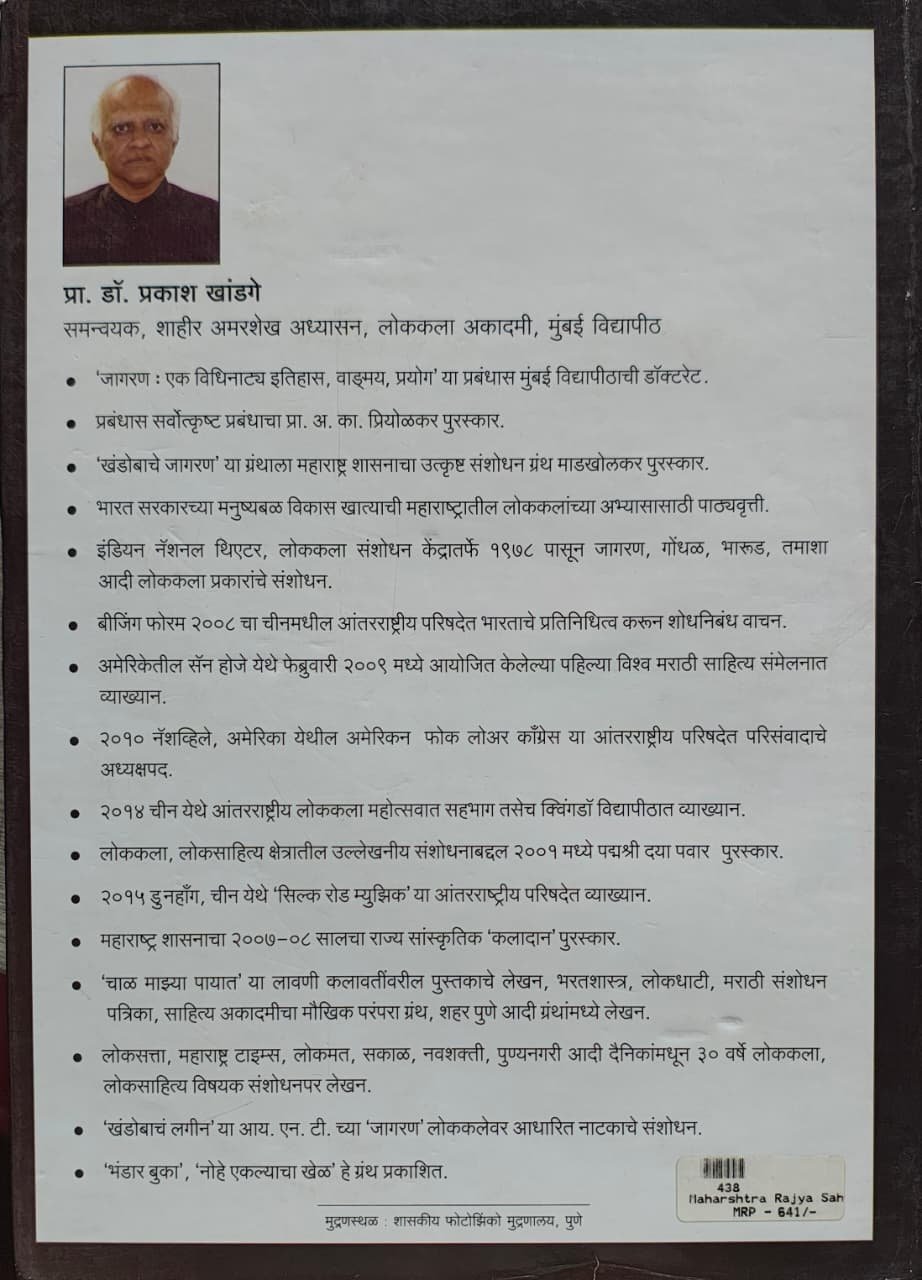 प्रा. डॉ. प्रकाश खांडगे
समन्वयक, शाहीर अमरशेख अध्यासन, लोककला अकादमी, मुंबई विद्यापीठ
• 'जागरण : एक विधिनाट्य इतिहास, वाङ्मय, प्रयोग' या प्रबंधास मुंबई विद्यापीठाची डॉक्टरेट.
• प्रबंधास सर्वोत्कृष्ट प्रबंधाचा प्रा. अ. का. प्रियोळकर पुरस्कार.
• 'खंडोबाचे जागरण' या ग्रंथाला महाराष्ट्र शासनाचा उत्कृष्ट संशोधन ग्रंथ माडखोलकर पुरस्कार.
• भारत सरकारच्या मनुष्यबळ विकास खात्याची महाराष्ट्रातील लोककलांच्या अभ्यासासाठी पाठ्यवृत्ती.
• इंडियन नॅशनल थिएटर, लोककला संशोधन केंद्रातर्फे १९७८ पासून जागरण, गोंधळ, भारूड, तमाशा
आदी लोककला प्रकारांचे संशोधन.
• बीजिंग फोरम २००८ चा चीनमधील आंतरराष्ट्रीय परिषदेत भारताचे प्रतिनिधित्व करून शोधनिबंध वाचन.
• अमेरिकेतील सॅन होजे येथे फेब्रुवारी २००९ मध्ये आयोजित केलेल्या पहिल्या विश्व मराठी साहित्य संमेलनात
व्याख्यान.
• २०१० नॅशव्हिले, अमेरिका येथील अमेरिकन फोक लोअर काँग्रेस या आंतरराष्ट्रीय परिषदेत परिसंवादाचे
अध्यक्षपद.
• २०१४ चीन येथे आंतरराष्ट्रीय लोककला महोत्सवात सहभाग तसेच क्विंगडॉ विद्यापीठात व्याख्यान.
• लोककला, लोकसाहित्य क्षेत्रातील उल्लेखनीय संशोधनाबद्दल २००१ मध्ये पद्मश्री दया पवार पुरस्कार.
• २०१५ डुनहाँग, चीन येथे 'सिल्क रोड म्युझिक' या आंतरराष्ट्रीय परिषदेत व्याख्यान.
• महाराष्ट्र शासनाचा २००७-०८ सालचा राज्य सांस्कृतिक 'कलादान' पुरस्कार.
• 'चाळ माझ्या पायात' या लावणी कलावतींवरील पुस्तकाचे लेखन, भरतशास्त्र, लोकधाटी, मराठी संशोधन
पत्रिका, साहित्य अकादमीचा मौखिक परंपरा ग्रंथ, शहर पुणे आदी ग्रंथांमध्ये लेखन.
• लोकसत्ता, महाराष्ट्र टाइम्स, लोकमत, सकाळ, नवशक्ती, पुण्यनगरी आदी दैनिकांमधून ३० वर्षे लोककला,
लोकसाहित्य विषयक संशोधनपर लेखन.
• 'खंडोबाचं लगीन' या आय. एन. टी. च्या 'जागरण' लोककलेवर आधारित नाटकाचे संशोधन.
• 'भंडार बुका', 'नोहे एकल्याचा खेळ' हे ग्रंथ प्रकाशित.
438
Maharshtra Rajya Sah
MRP - 641/-
मुद्रणस्थळ : शासकीय फोटोझिंको मुद्रणालय, पुणे